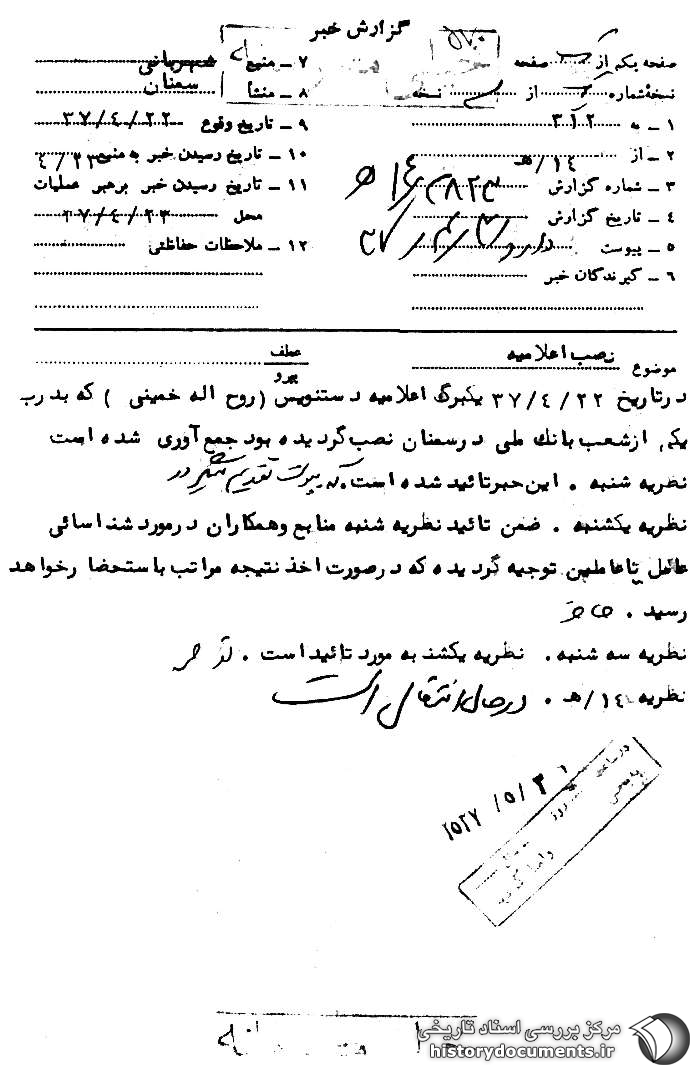 گزارش خبر
صفحه یکم از صفحه
نسخه شماره از نسخه
۱ ـ به ۳۱۲
۲ ـ از ۱۴/هـ
۳ ـ شماره گزارش
۴ ـ تاریخ گزارش
۵ ـ پیوست دارد
۶ ـ گیرندگان خبر
۷ ـ منبع شهربانی
۸ ـ منشأ سمنان
۹ ـ تاریخ وقوع ۳۷/۴/۲۲
۱۰ ـ تاریخ رسیدن خبر به منبع ۴/۲۳
۱۱ ـ تاریخ رسیدن خبر برهبر عملیات
محل ۳۷/۴/۲۳
۱۲ ـ ملاحظات حفاظتی
موضوع نصب اعلامیه
عطف
پیرو
درتاریخ ۳۷/۴/۲۲ یکبرگ اعلامیه دستنویس (روح اله خمینی ) که بدرب
یکی ازشعب بانك ملی درسمنان نصب گردیده بود جمع آوری شده است
نظریه شنبه . این خبرتائید شده است. که پیوست تقدیم میگردد
نظریه یکشنبه . ضمن تائید نظریه شنبه منابع وهمکاران درمورد شناسائی
عامل یاعاملین توجیه گردیده که درصورت اخذ نتیجه مراتب باستحضا رخواهد
رسید .
نظریه سه شنبه. نظریه یکشنبه مورد تائیداست .
نظریه ۱۴/هـ . درحال انتقال است
۲۵۳۷/۵/۲
مرکز بررسی اسناد تاریخی
historydocuments.ir